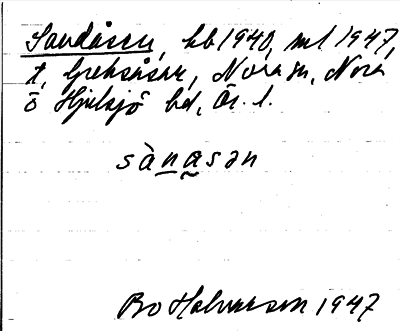 Sandåsen, kb 1940, ml 1947,
t, Grecksåsar, Nora sn, Nora
o Hjulsjö bd, Ör. l.
sànasan
Bo Halvarsson 1947